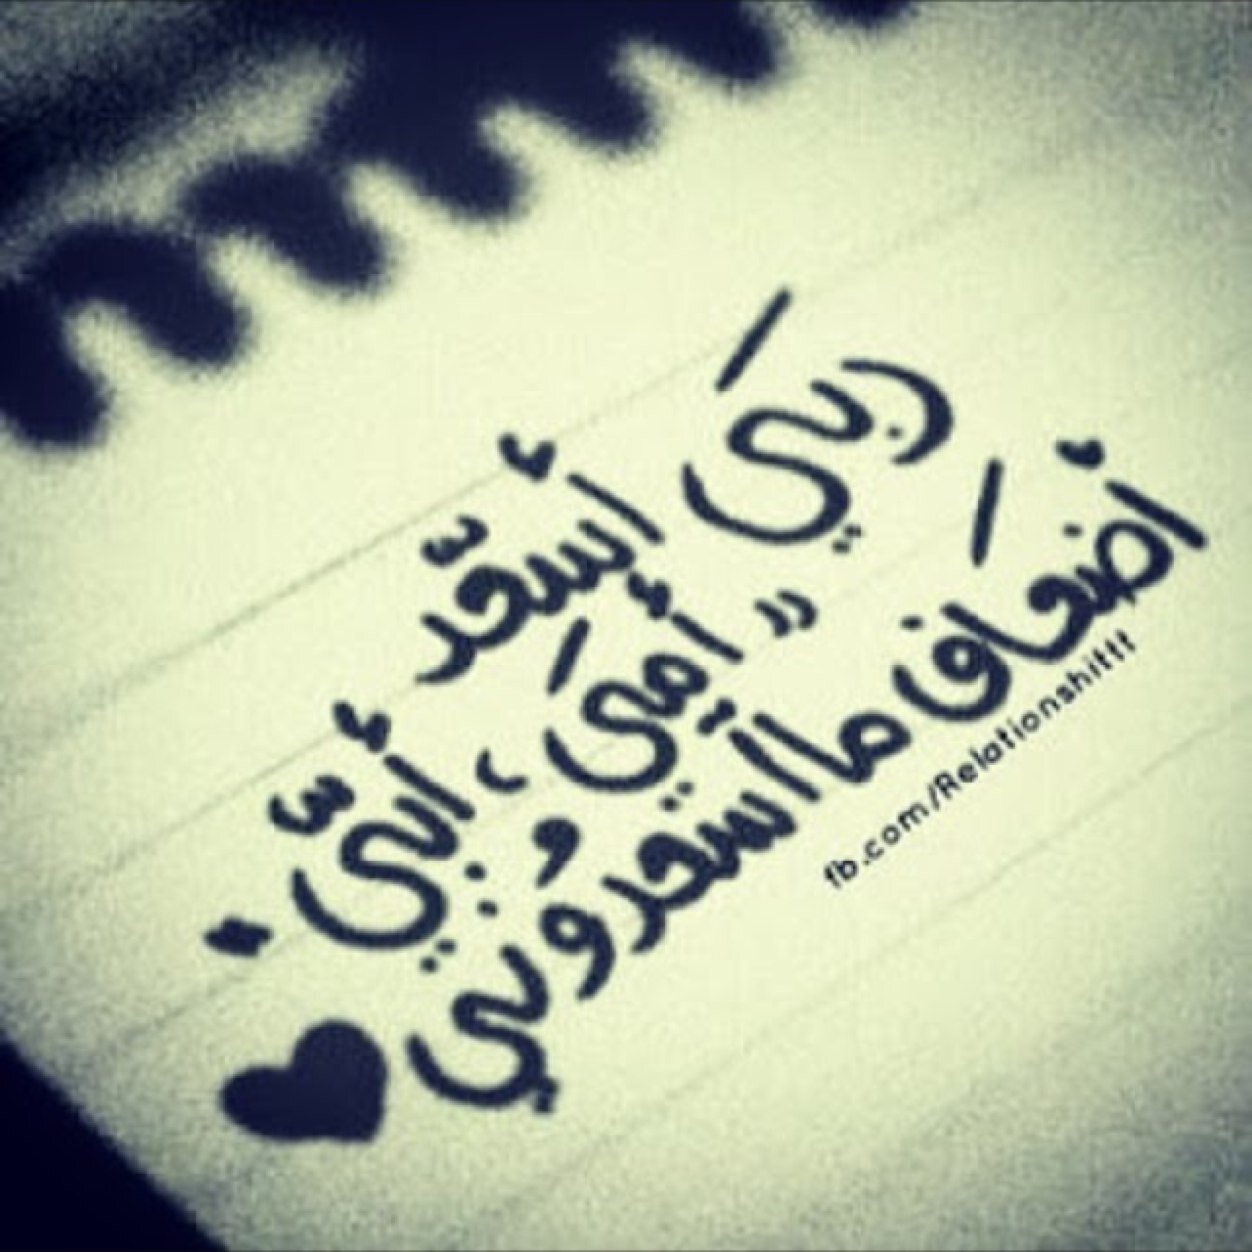 ربي أسعد
" أمي ، و أبي "
أضعاف ما أسعدوني
fb.com/Relationshittt